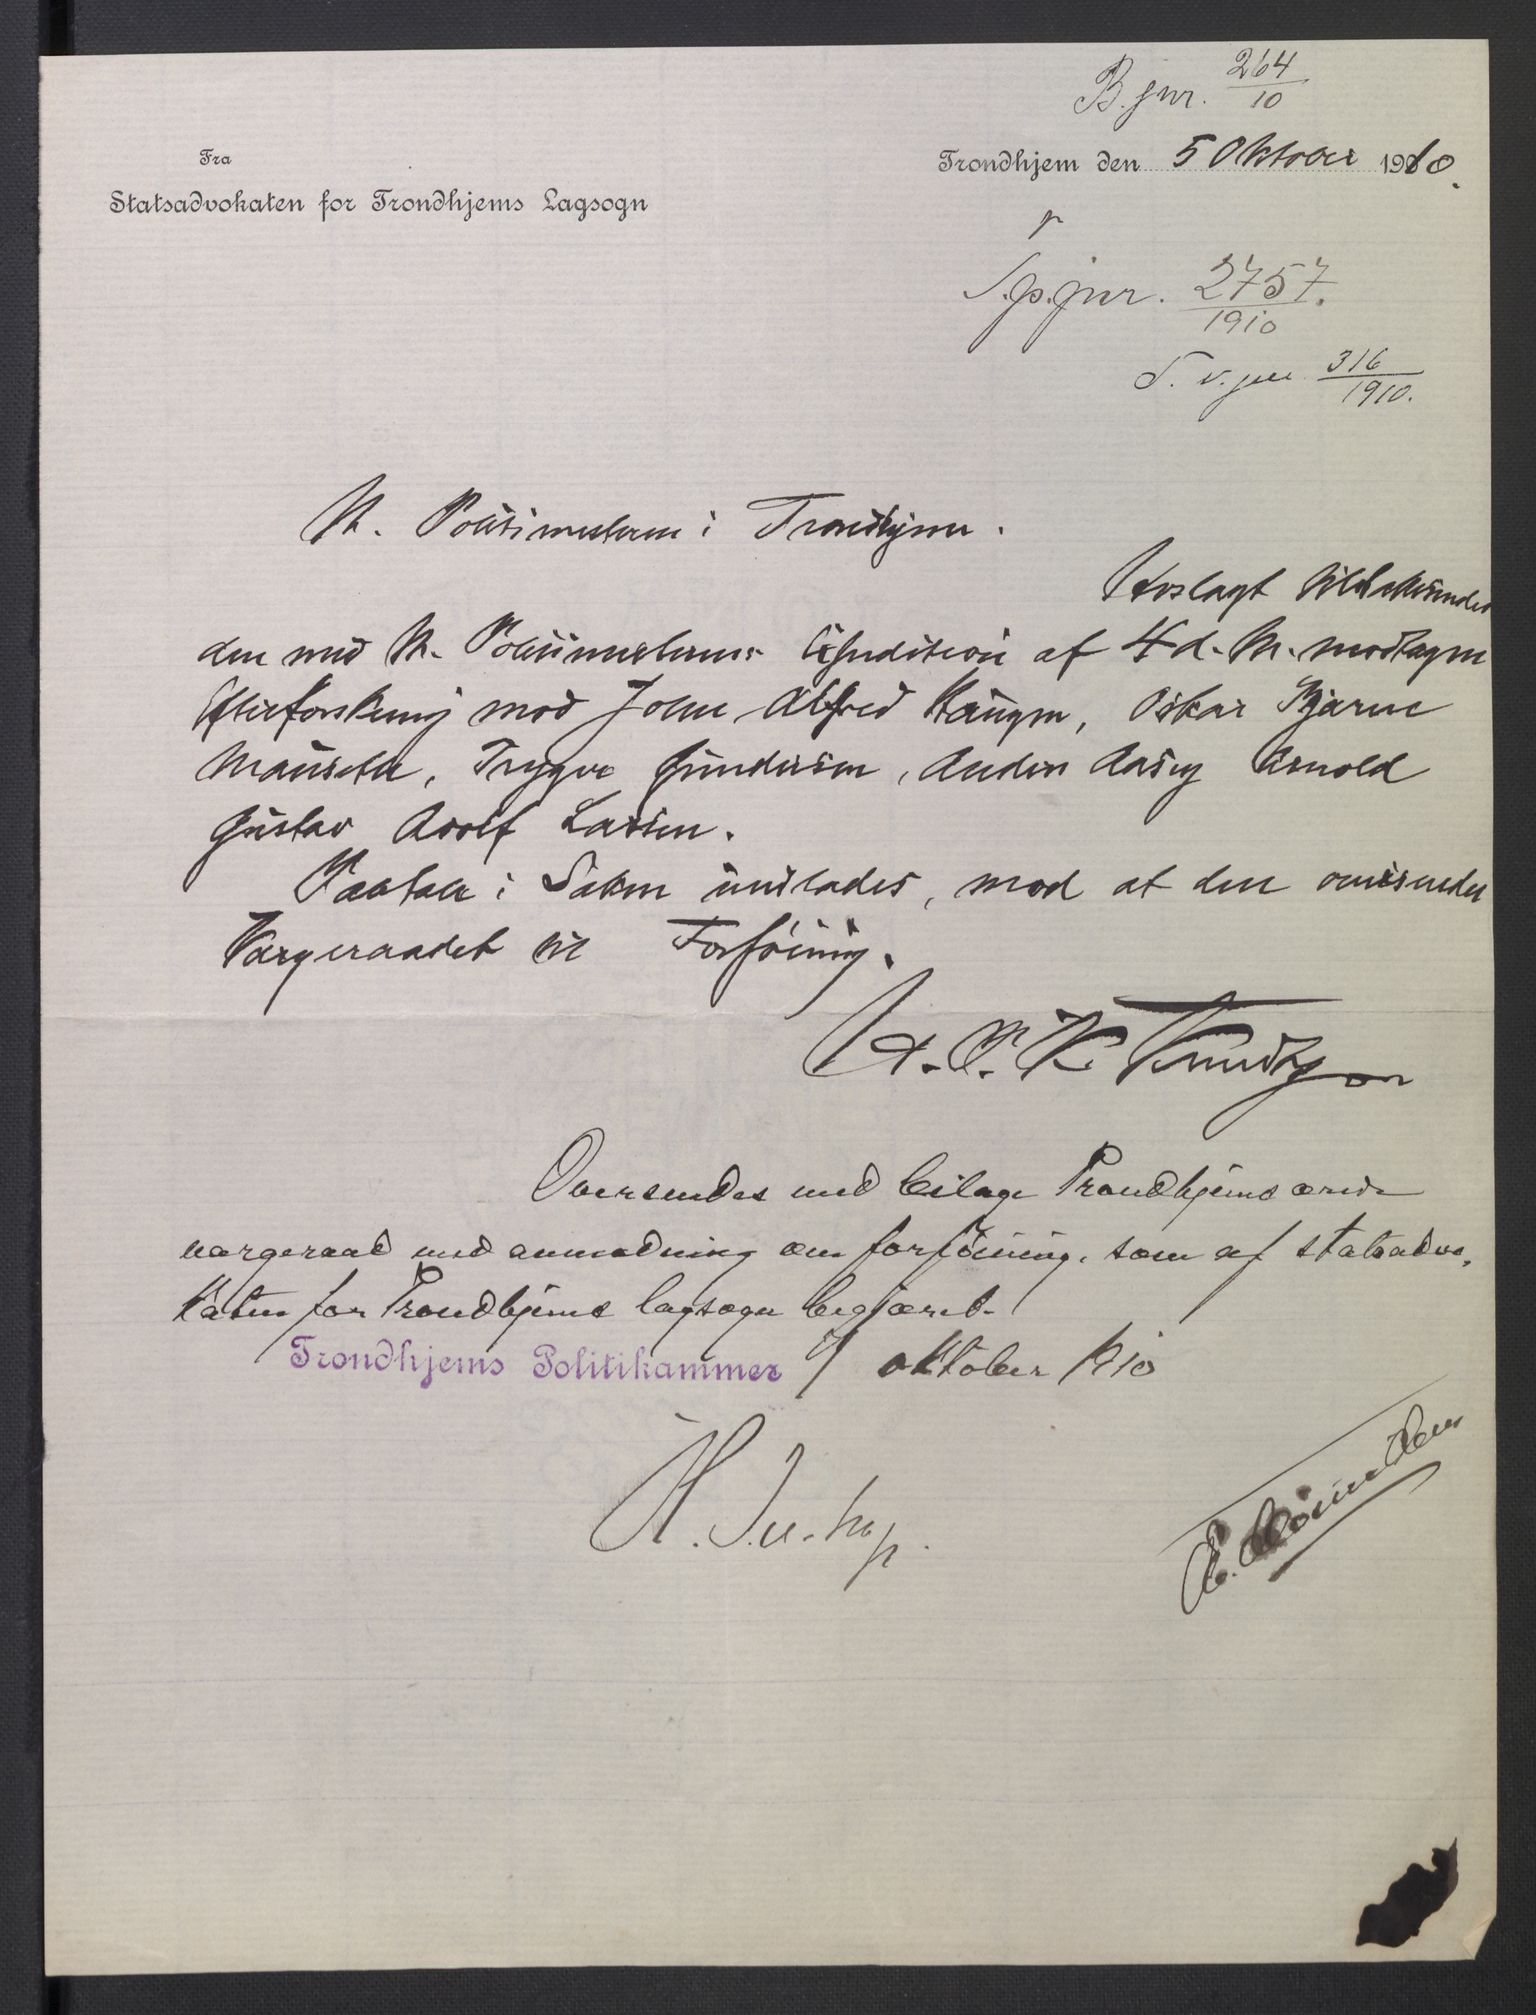 B. jnr. 264/10
Fra
Trondhjem den 5 Oktober 1910.
Statsadvokaten for Trondhjems Lagsogn
S.p.jnr. 2757/1910.
S. v. jnr 316/1910.
Hr. Politimesteren i Trondhjem.
Hoslagt tilbakesendes
den med Hr. Politimesterens Expedition af 4 d. M. modtagne
Efterforskning mod John Alfred Haugen, Oskar Bjarne
Mauseth, Trygve Gundersen, Anders Aas og Arnold
Gustav Adolf Larsen.
Paatale i Saken undlades, mod at den oversendes
Vergeraadet til Forføining.
Knudtzon
Oversendes med bilage Trondhjems ærede
vergeraad med anmodning om forføining, som af statsadvo-
katen for Trondhjems lagsogn begjæret.
Trondhjems Politikammer 7 oktober 1910